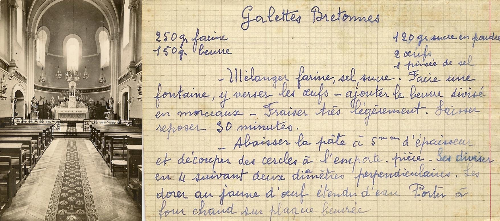 Galettes Bretonnes
250 gr farine 120 gr sucre en poudre
150 gr beurre 2 œufs
1 pincée de sel
- Mélanger farine, sel sucre. Faire une
fontaine, y verser les œufs - ajouter le beurre divisé
en morceaux - Fraiser très légèrement. Laisser
reposer 30 minutes.
- Abaisser la pâte à 5 mm d'épaisseur
et découper des cercles à l'emporte pièce - Les diviser
en 4 suivant deux diamètres perpendiculaires. Les
dorer au jaune d'œuf étendu d'eau Porter à
four chaud sur plaque beurrée